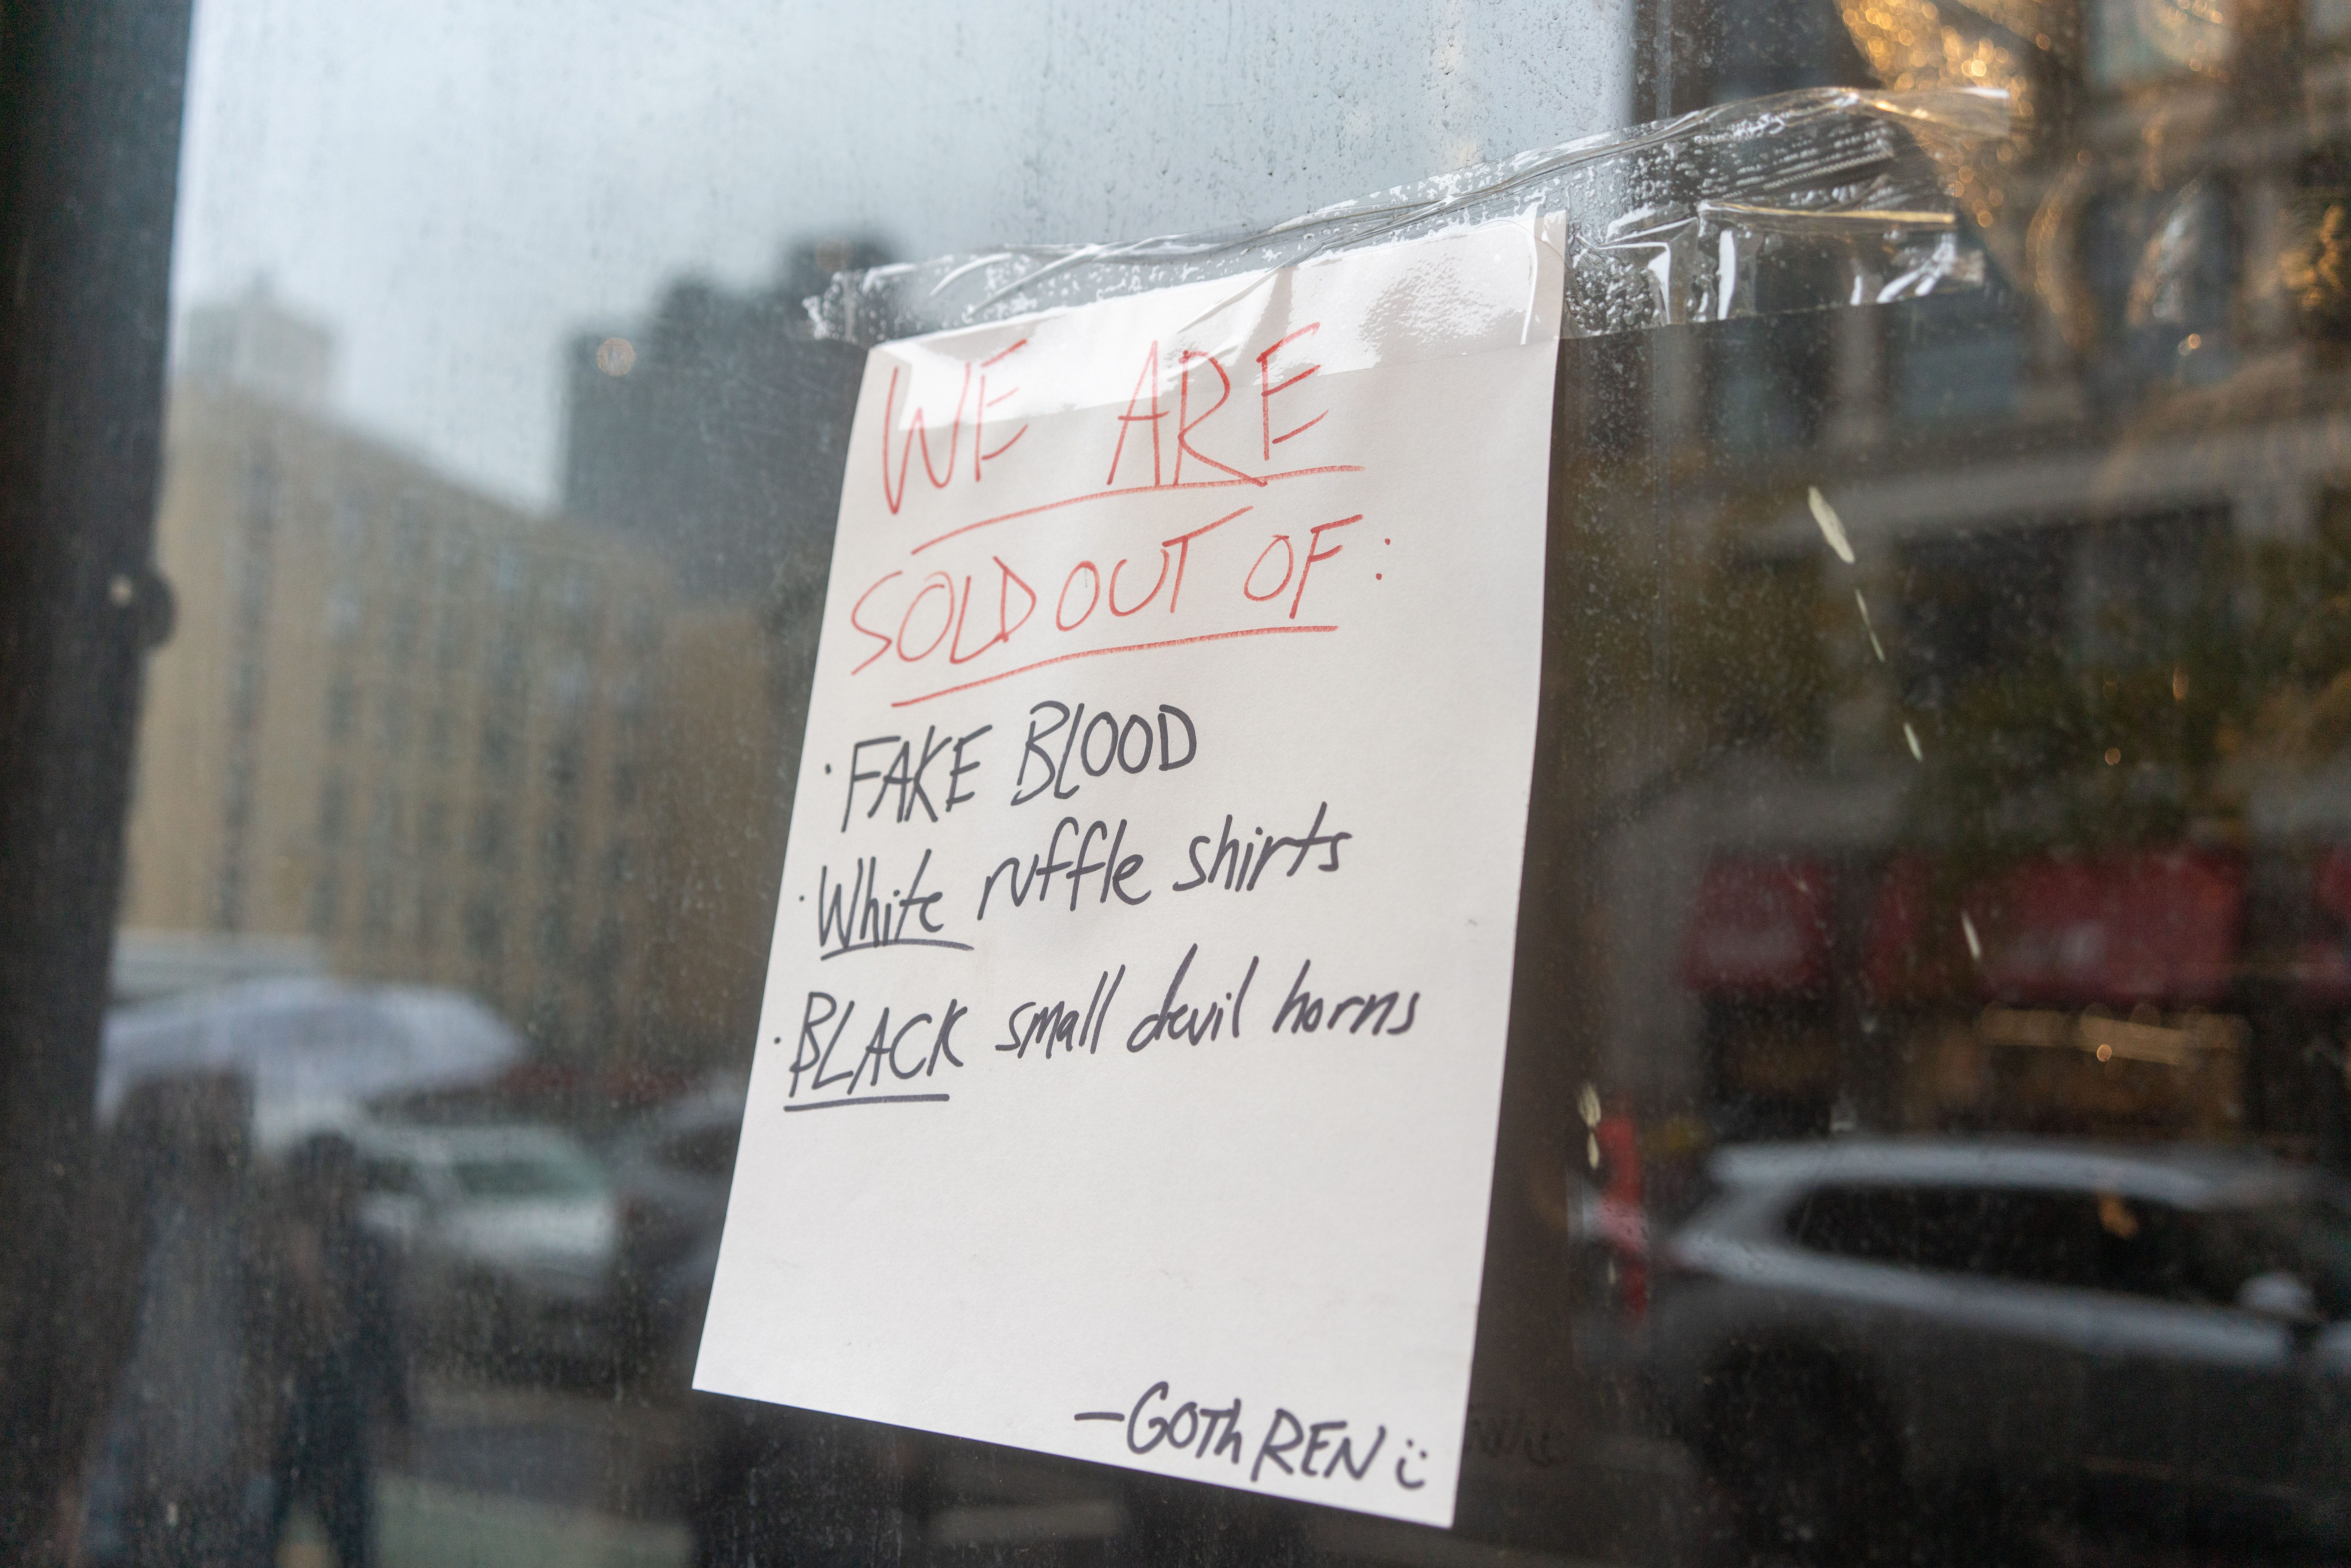 WE ARE
SOLD OUT OF:
· FAKE BLOOD
· White ruffle shirts
· BLACK small devil horns
— GOTh REN :)